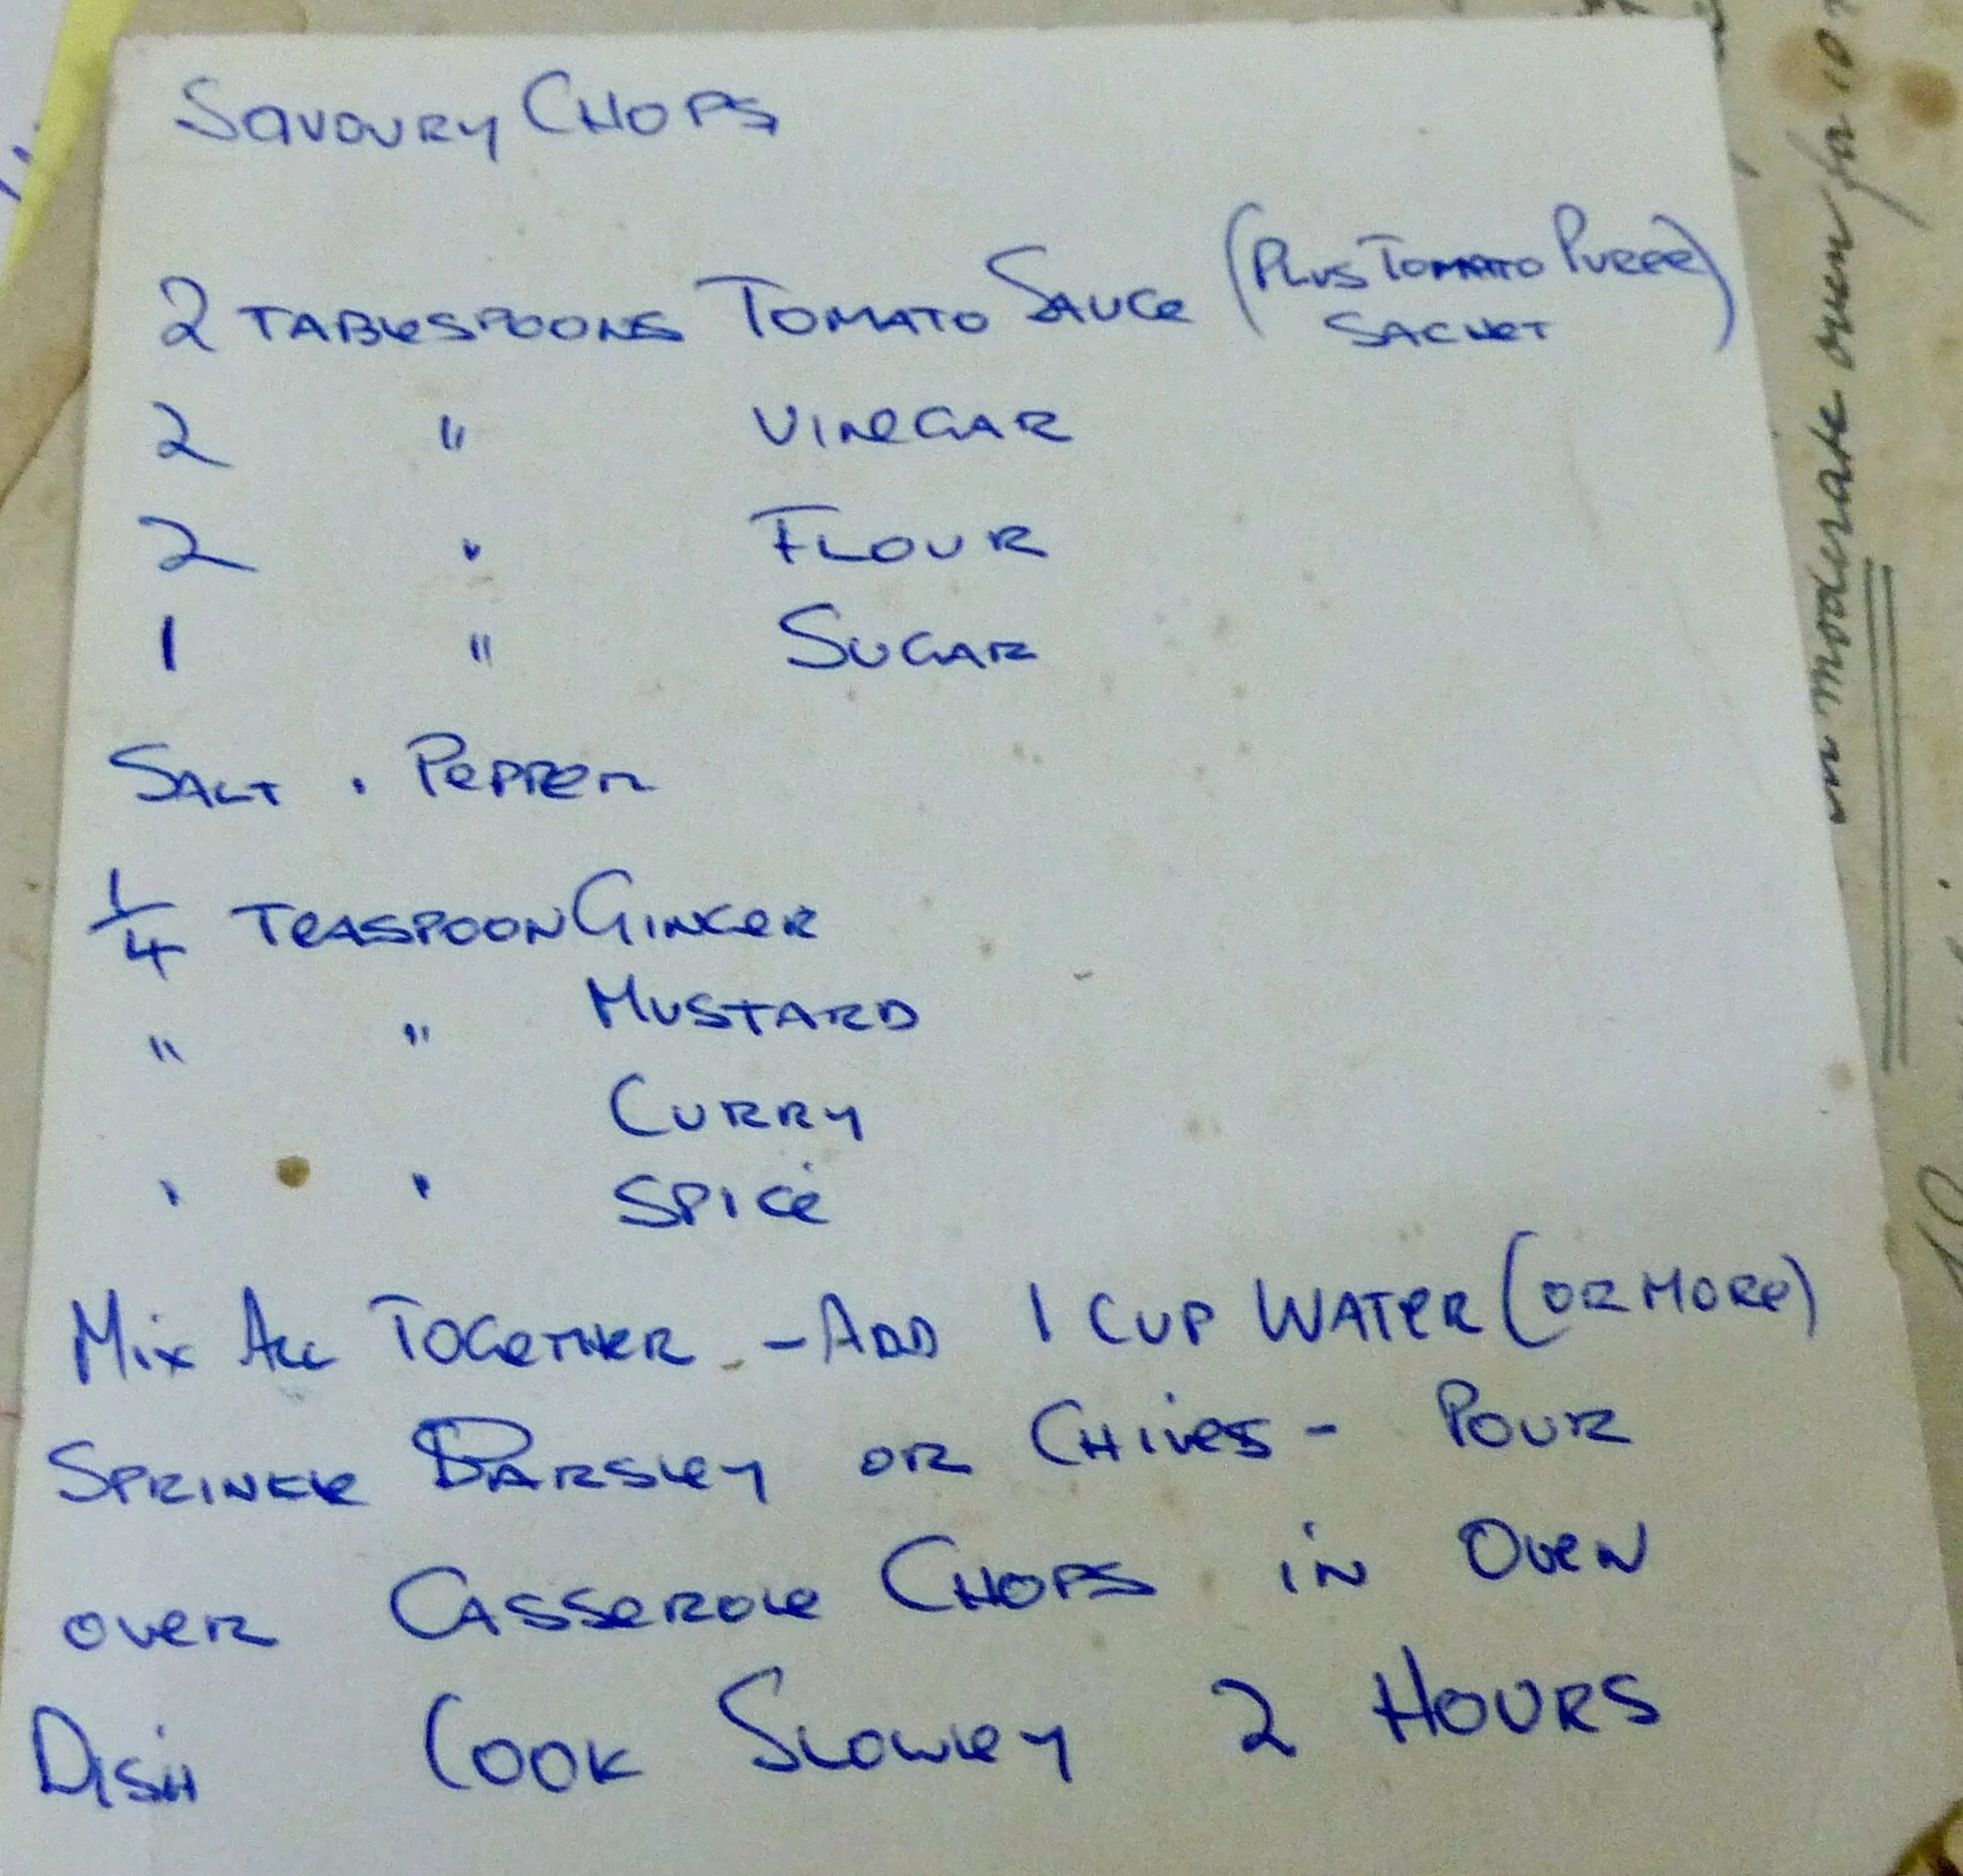 SAVOURY CHOPS
2 TABLESPOONS TOMATO SAUCE (PLUS TOMATO PUREE SACHET)
2 " VINEGAR
2 " FLOUR
1 " SUGAR
SALT . PEPPER
1/4 TEASPOON GINGER
" " MUSTARD
CURRY
" " SPICE
MIX ALL TOGETHER - ADD 1 CUP WATER (OR MORE)
SPRINKLE PARSLEY OR CHIVES - POUR
OVER CASSEROLE CHOPS IN OVEN
DISH COOK SLOWLEY 2 HOURS
in moderate oven for 10